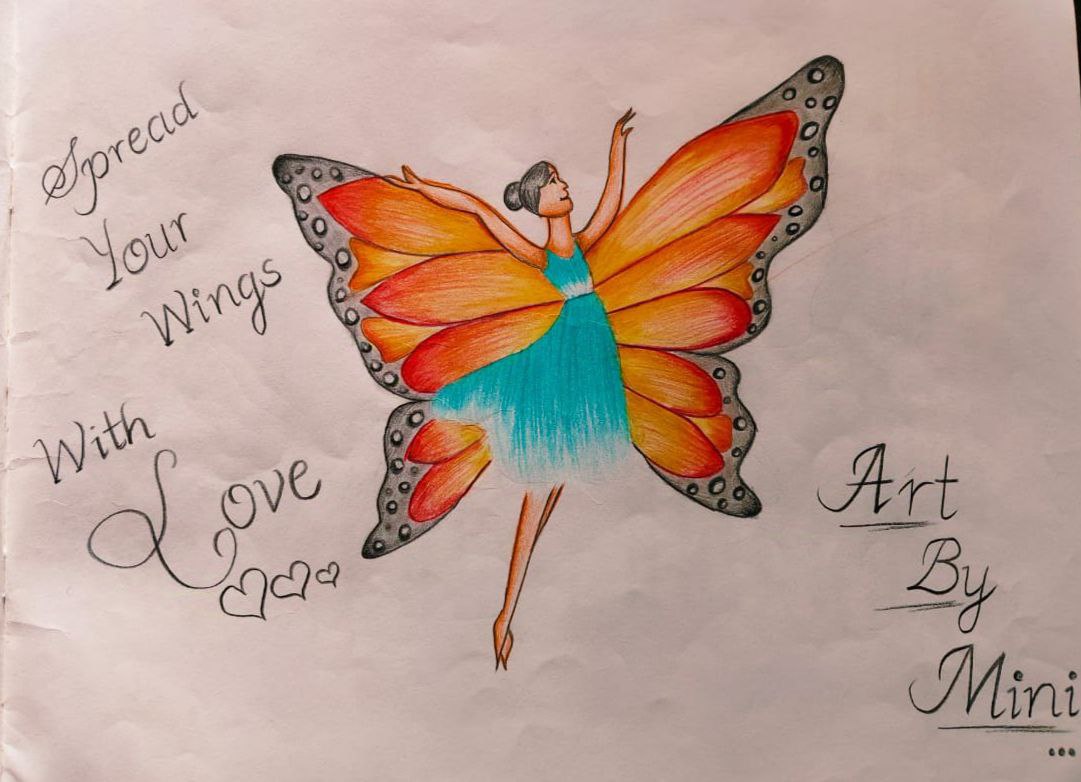 Spread
Your
Wings
With
Love
Art
By
Mini
...